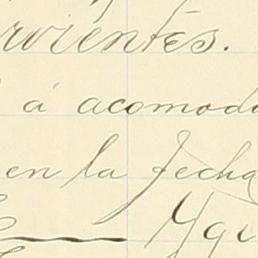 rvientes.
á acomoda
en la fecha